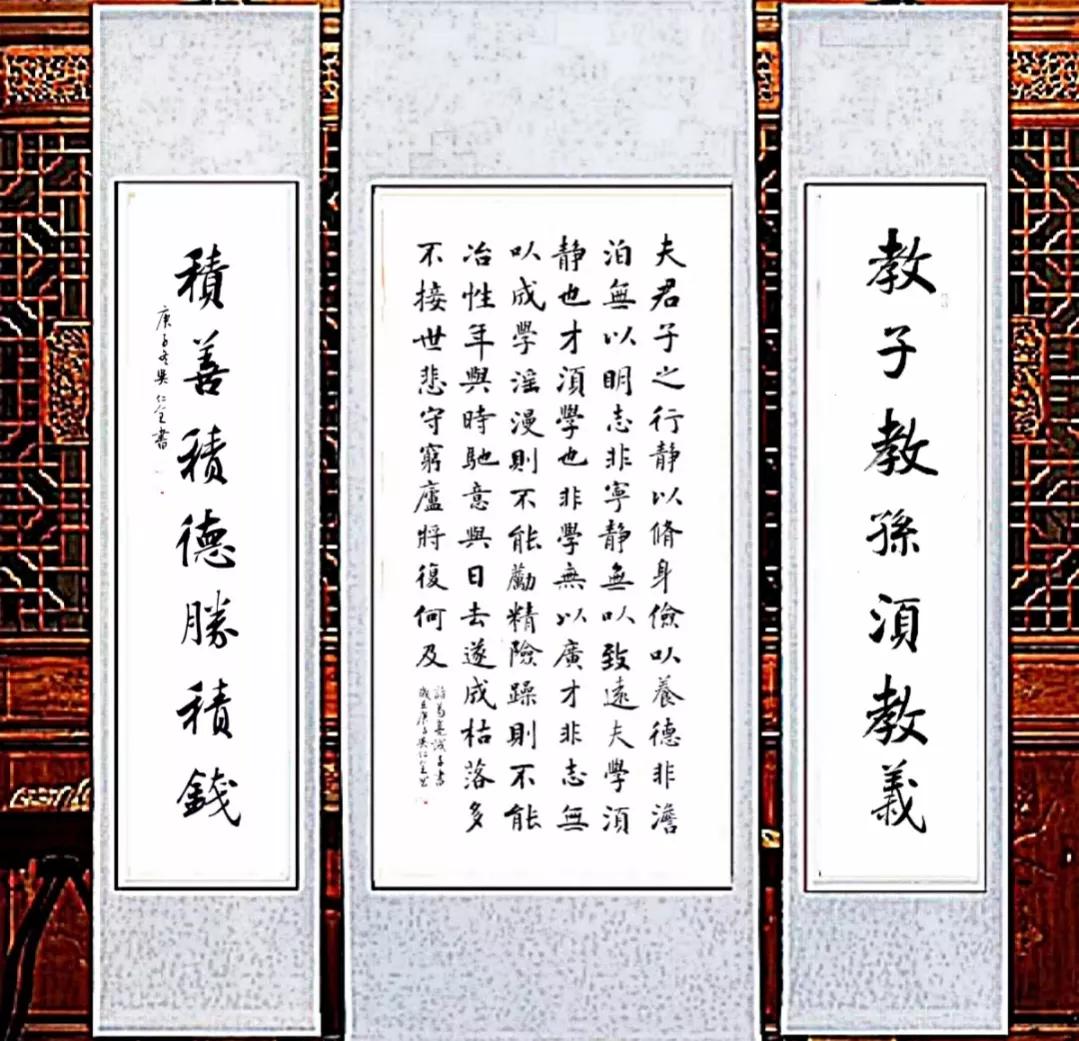 教子教孫湏教義
夫君子之行静以脩身儉以養德非澹
泊無以明志非寧静無以致遠夫學湏
静也才湏學也非學無以廣才非志無
以成學淫漫則不能勵精險躁則不能
冶性年與時馳意與日去遂成枯落多
不接世悲守窮廬將復何及
諸葛亮誡子書
歲在庚子吳仁全書
積善積德勝積錢
庚子冬吳仁全書